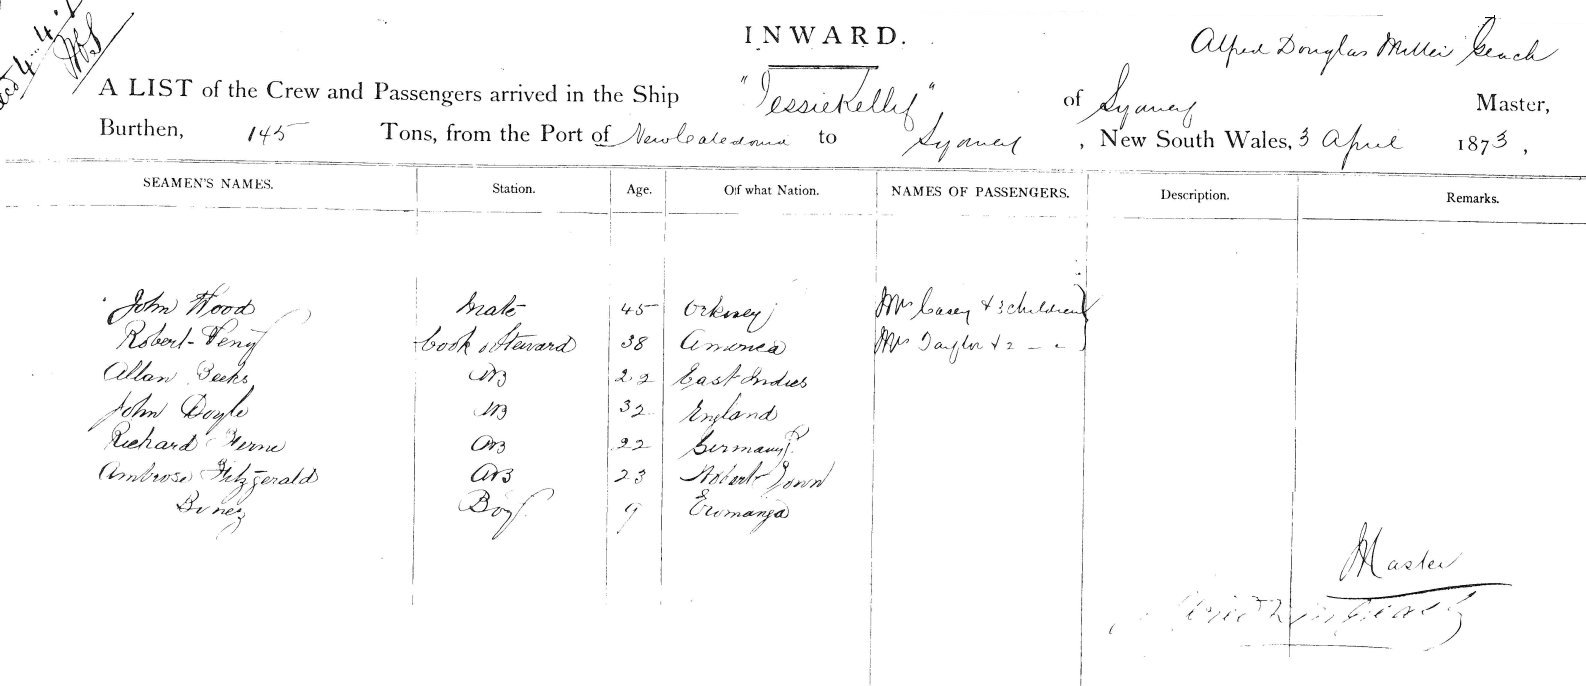 INWARD.
Alfred Douglas Miller Geach
A LIST of the Crew and Passengers arrived in the Ship "Jessie Kelly" of Sydney Master,
Burthen, 145 Tons, from the Port of New Caledonia to Sydney, New South Wales, 3 April 1873,
SEAMEN'S NAMES. Station. Age. Of what Nation. NAMES OF PASSENGERS. Description. Remarks.
John Wood Mate 45 Orkney Mrs Casey & 3 children
Robert Cook & Steward 38 America Mrs Taylor & 2 – –
Allan AB 22 East Indies
John Doyle AB 32 England
Richard AB 22 Germany
Ambrose Fitzgerald AB 23 Hobart Town
Boy 9 Eromanga
Master